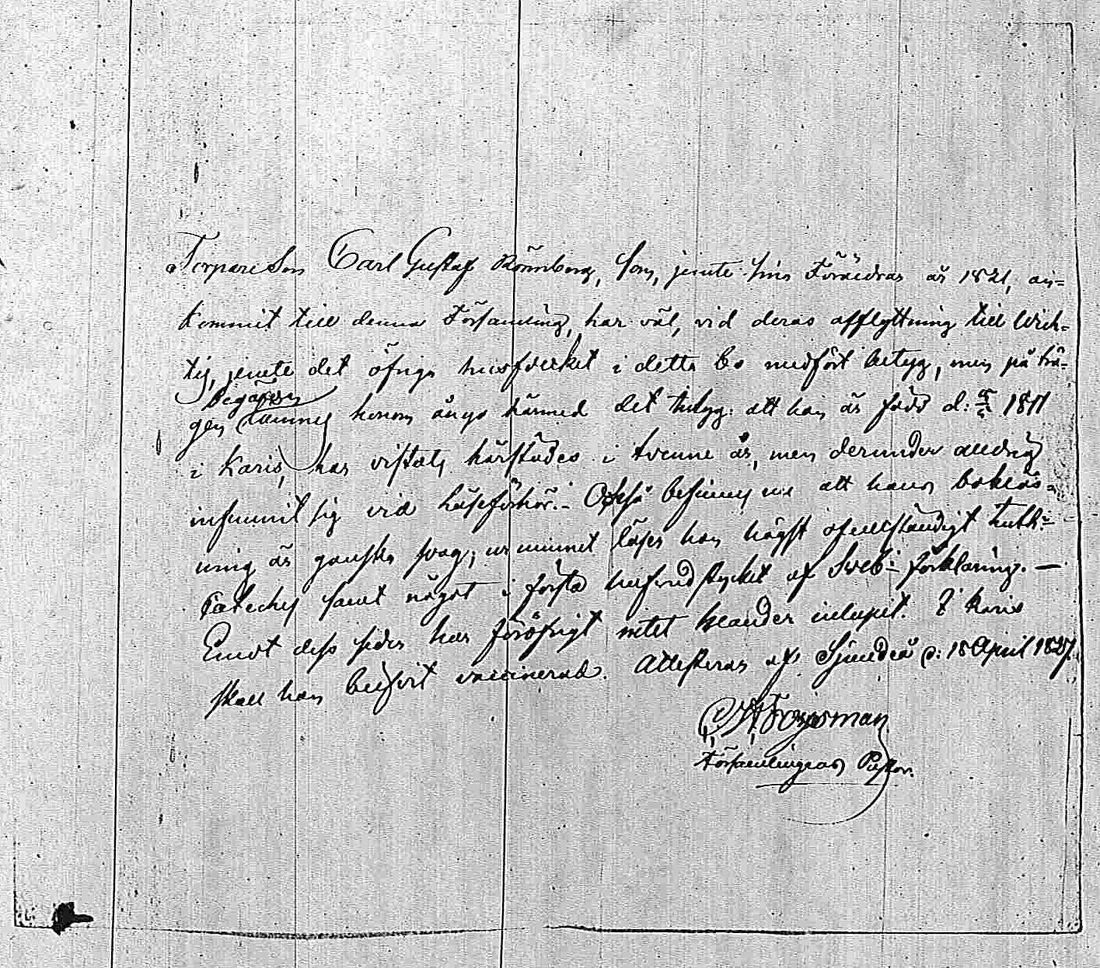 Torpare Son Carl Gustaf Rönnberg, som, jemte sina Föräldrar år 1821, an=
kommit till denna Församling, har väl, vid deras afflyttning till Wich=
tis, jemte det öfriga husfolket i detta bo medfört betyg, men på trä=
begäran
gen lämnas honom ånyo härmed det betyg: att han är född d: 1811
i Karis, har vistats härstädes i tvenne år, men derunder aldrig
infunnit sig vid läseförhör.- Också befinnes att hans bokläs=
ning är ganska svag; ur minnet läser han högst ofullständigt Luth:
Cateches samt något i första hufvudstycket af Sveb: förklaring. —
Emot dess seder har föröfrigt intet klander inlupit. I Karis
skall han blifvit vaccinerad. Attesteras af Sjundeå d: 18 April 1827.
Forsman
Församlingens Pastor.